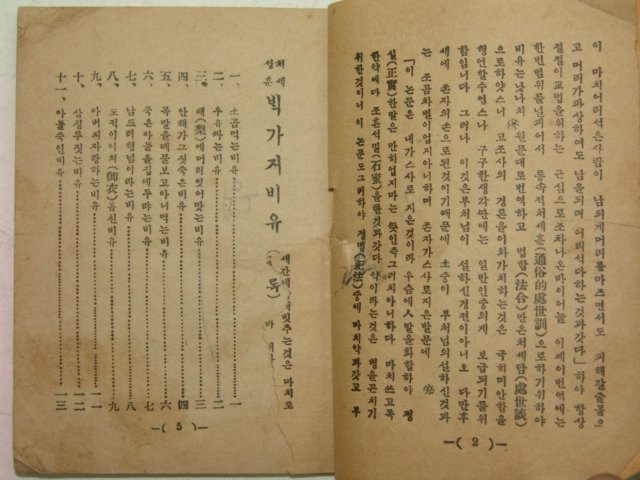 이 마치어리석은사람이 남의게머리를마즈면서도 피해갈줄몰으
고 머리가파상하여도 남을되며 어리석다하는것과갓다」 하야 항상
절절이교법을위하는 근심으로조차나온바이어늘 이제이번역에는
한번범위를넓피어서 통속적처세훈(通俗的處世訓)으로하기위하야
비유는낫낫치 원문대로번역하고 법합(法合)만은처세담(處世談)
으로하얏스니 고조사의 경론을이와가치하는것은 극히미안함을
형언할수업스나 구구한생각깐에는 일반인중의게 보급되기를위
함임니다 그러나 이것은부처님이 설하신경전이아니오 다만후
세에 존자의손으로된것이기때문에 소승이 부처님의설하신것과
는 조곰차별이업지아니하며 존자가스사로지은발문에
「이 론문은 내가스사로지은것이라 우슴에人말을화합하야 정
실(正實)한말은 만히업지마는 뜻인즉그러치아니하다 마치쓰고독
한약에다 조흔석밀(石蜜)을탄것과갓다 약이라는것은 병을곤치기
위한것이니 이 론문도그러하야 정법(正法)중에 마치약과갓고 우
—( 2 )—
처세
성훈 빅가지비유
세간에 빗추는것은 마치도
목
一、소곰먹는비유 一
二、우유짜는비유 二
三、배(梨)에머리엇어맛는비유
四、안해가그짓죽은비유 四
五、목말을때물보고아니먹는비유
六、죽은아들을집에두랴는비유 七
七、남드려형님이라는비유 八
八、도적이이의(御衣)을훔친비유 九
九、아버지자랑하는비유 一一
十、삼칭루짓는비유 一二
十一、아들죽인비유 一三
—( 5 )—